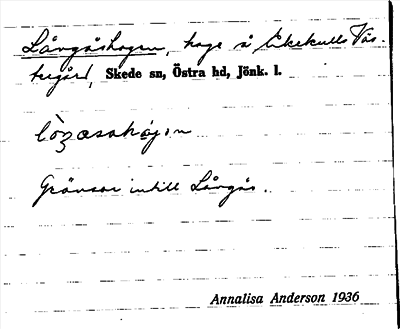 Lårgåshagen, hage å Ekekulls Väs-
tregård, Skede sn, Östra hd, Jönk. l.
Gränsar intill Lårgås.
Annalisa Anderson 1936